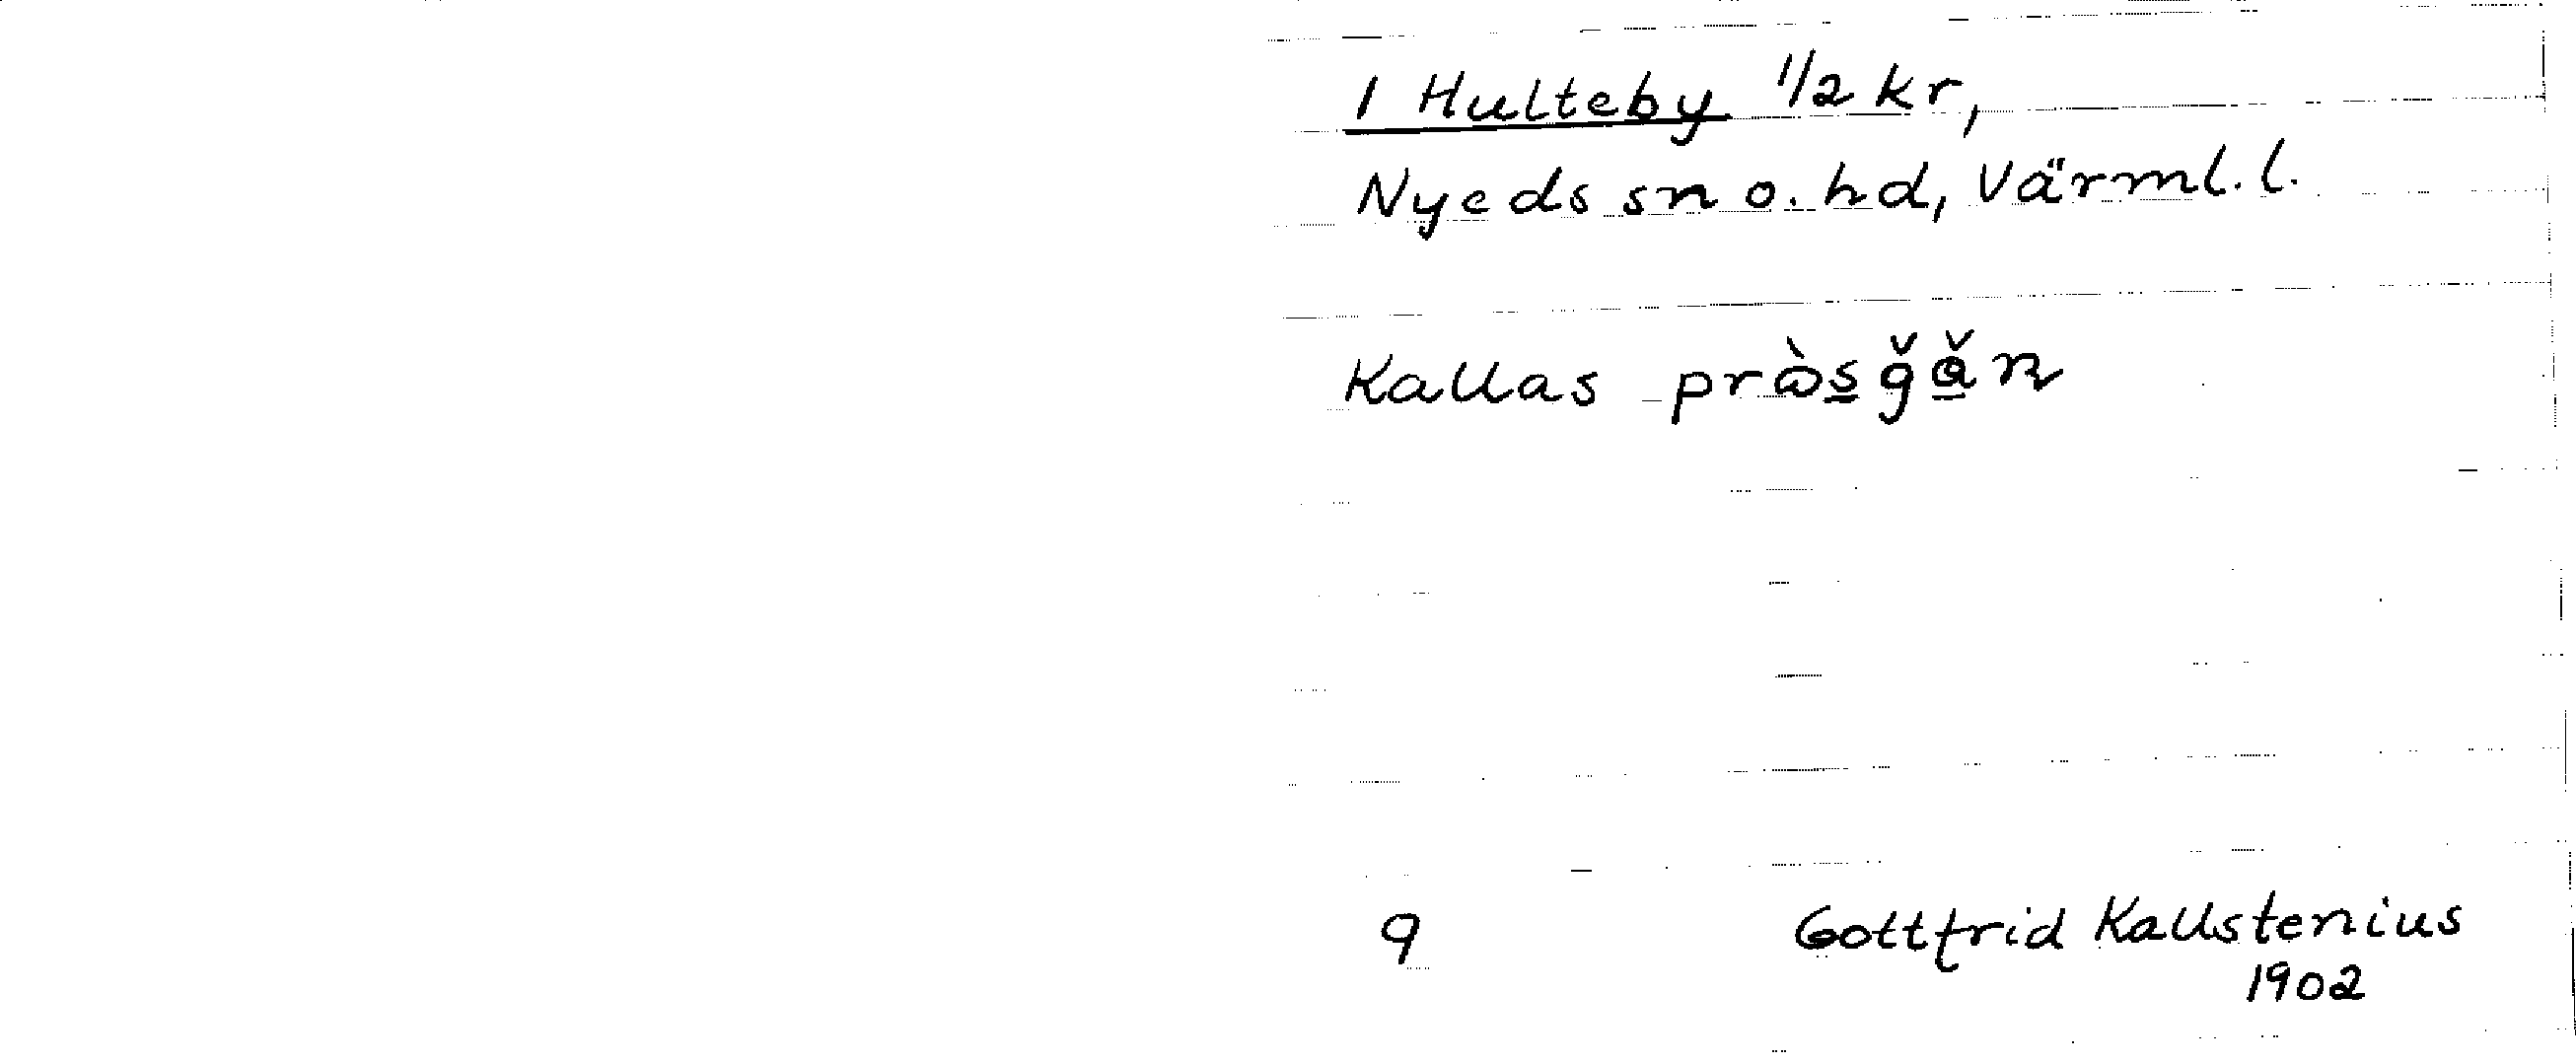 1 Hulteby 1/2 kr,
Nyeds sn o. hd, Värml. l.
Kallas
9 Gottfrid Kallstenius
1902